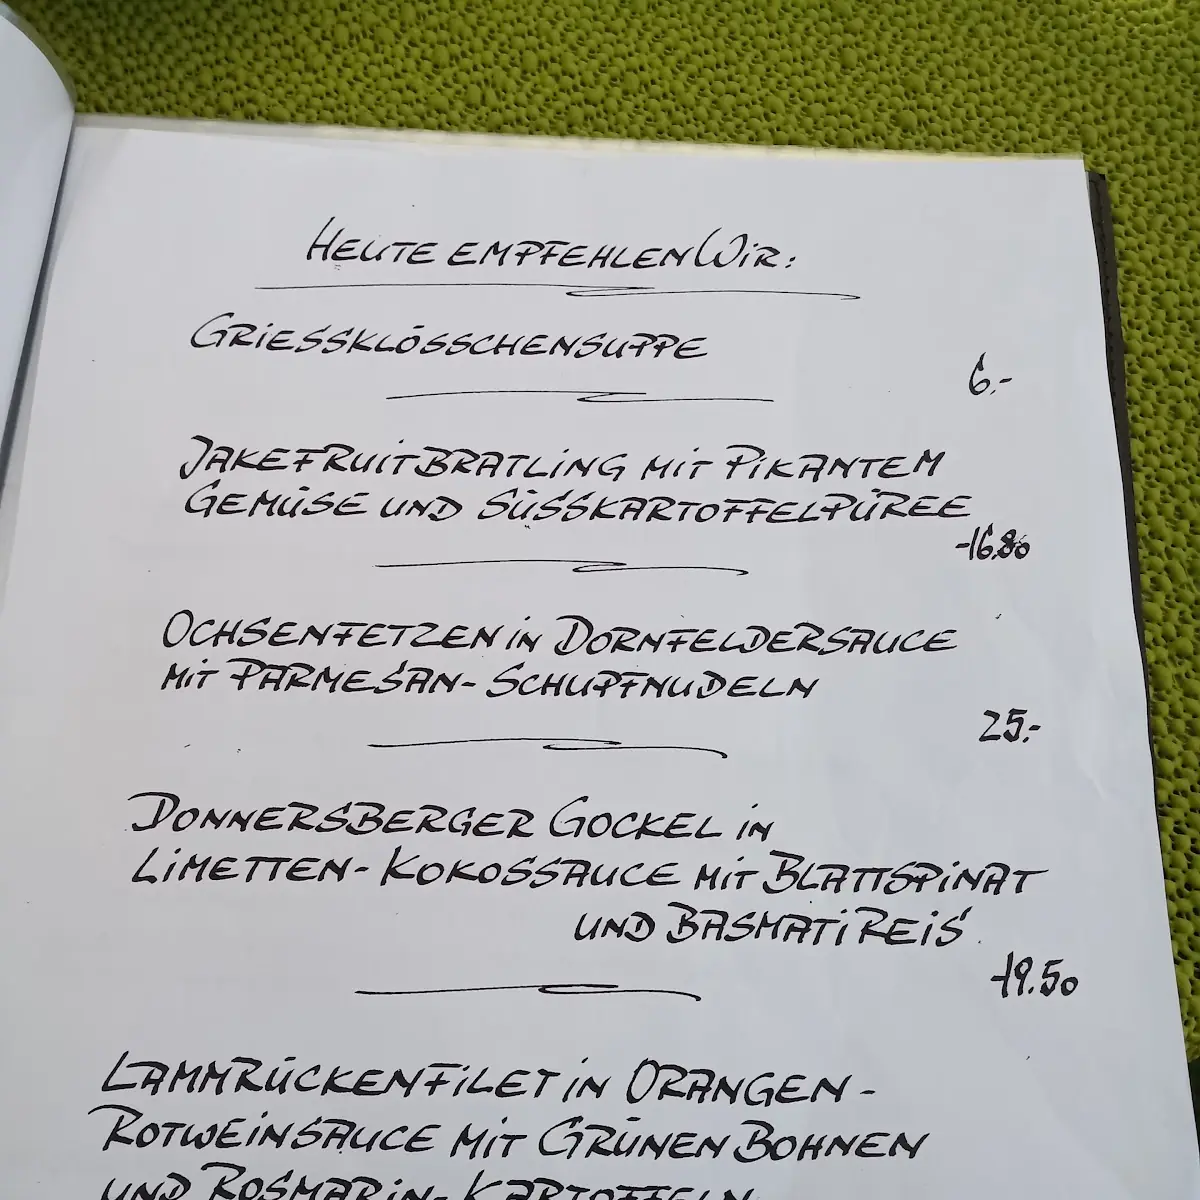 HEUTE EMPFEHLEN WIR:
GRIESSKLÖSSCHENSUPPE
6.-
JAKEFRUITBRATLING MIT PIKANTEM
GEMÜSE UND SÜSSKARTOFFELPÜREE
16.80
OCHSENFETZEN IN DORNFELDERSAUCE
MIT PARMESAN-SCHUPFNUDELN
25.-
DONNERSBERGER GOCKEL IN
LIMETTEN-KOKOSSAUCE MIT BLATTSPINAT
UND BASMATIREIS
19.50
LAMMRÜCKENFILET IN ORANGEN-
ROTWEINSAUCE MIT GRÜNEN BOHNEN
UND ROSMARIN-KARTOFFELN